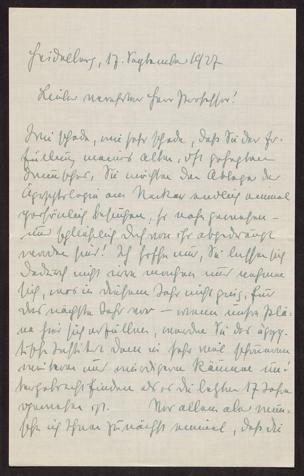 Heidelberg, 17. September 1927
Lieber verehrter Herr Professor!
Wie schade, wie sehr schade, daß Sie der Er-
füllung meines alten, oft gehegten
Wunsches, Sie möchten den Ablage der
Ägyptologie am Neckar endlich einmal
persönlich besuchen, so nahe gewesen –
und schließlich doch von ihr abgedrängt
worden sind! Ich hoffe nur, Sie lassen sich
dadurch nicht irre machen und nehmen
sich, was in diesem Jahr nicht ging, für
das nächste Jahr vor – wenn meine Plä-
ne sich erfüllen, werden Sie das ägyp-
tische Institut dann in sehr viel schöneren
weiteren und würdigeren Räumen un-
tergebracht finden als es die letzten 17 Jahre
gewesen ist. Vor allem aber wün-
sche ich Ihnen zunächst einmal, daß die